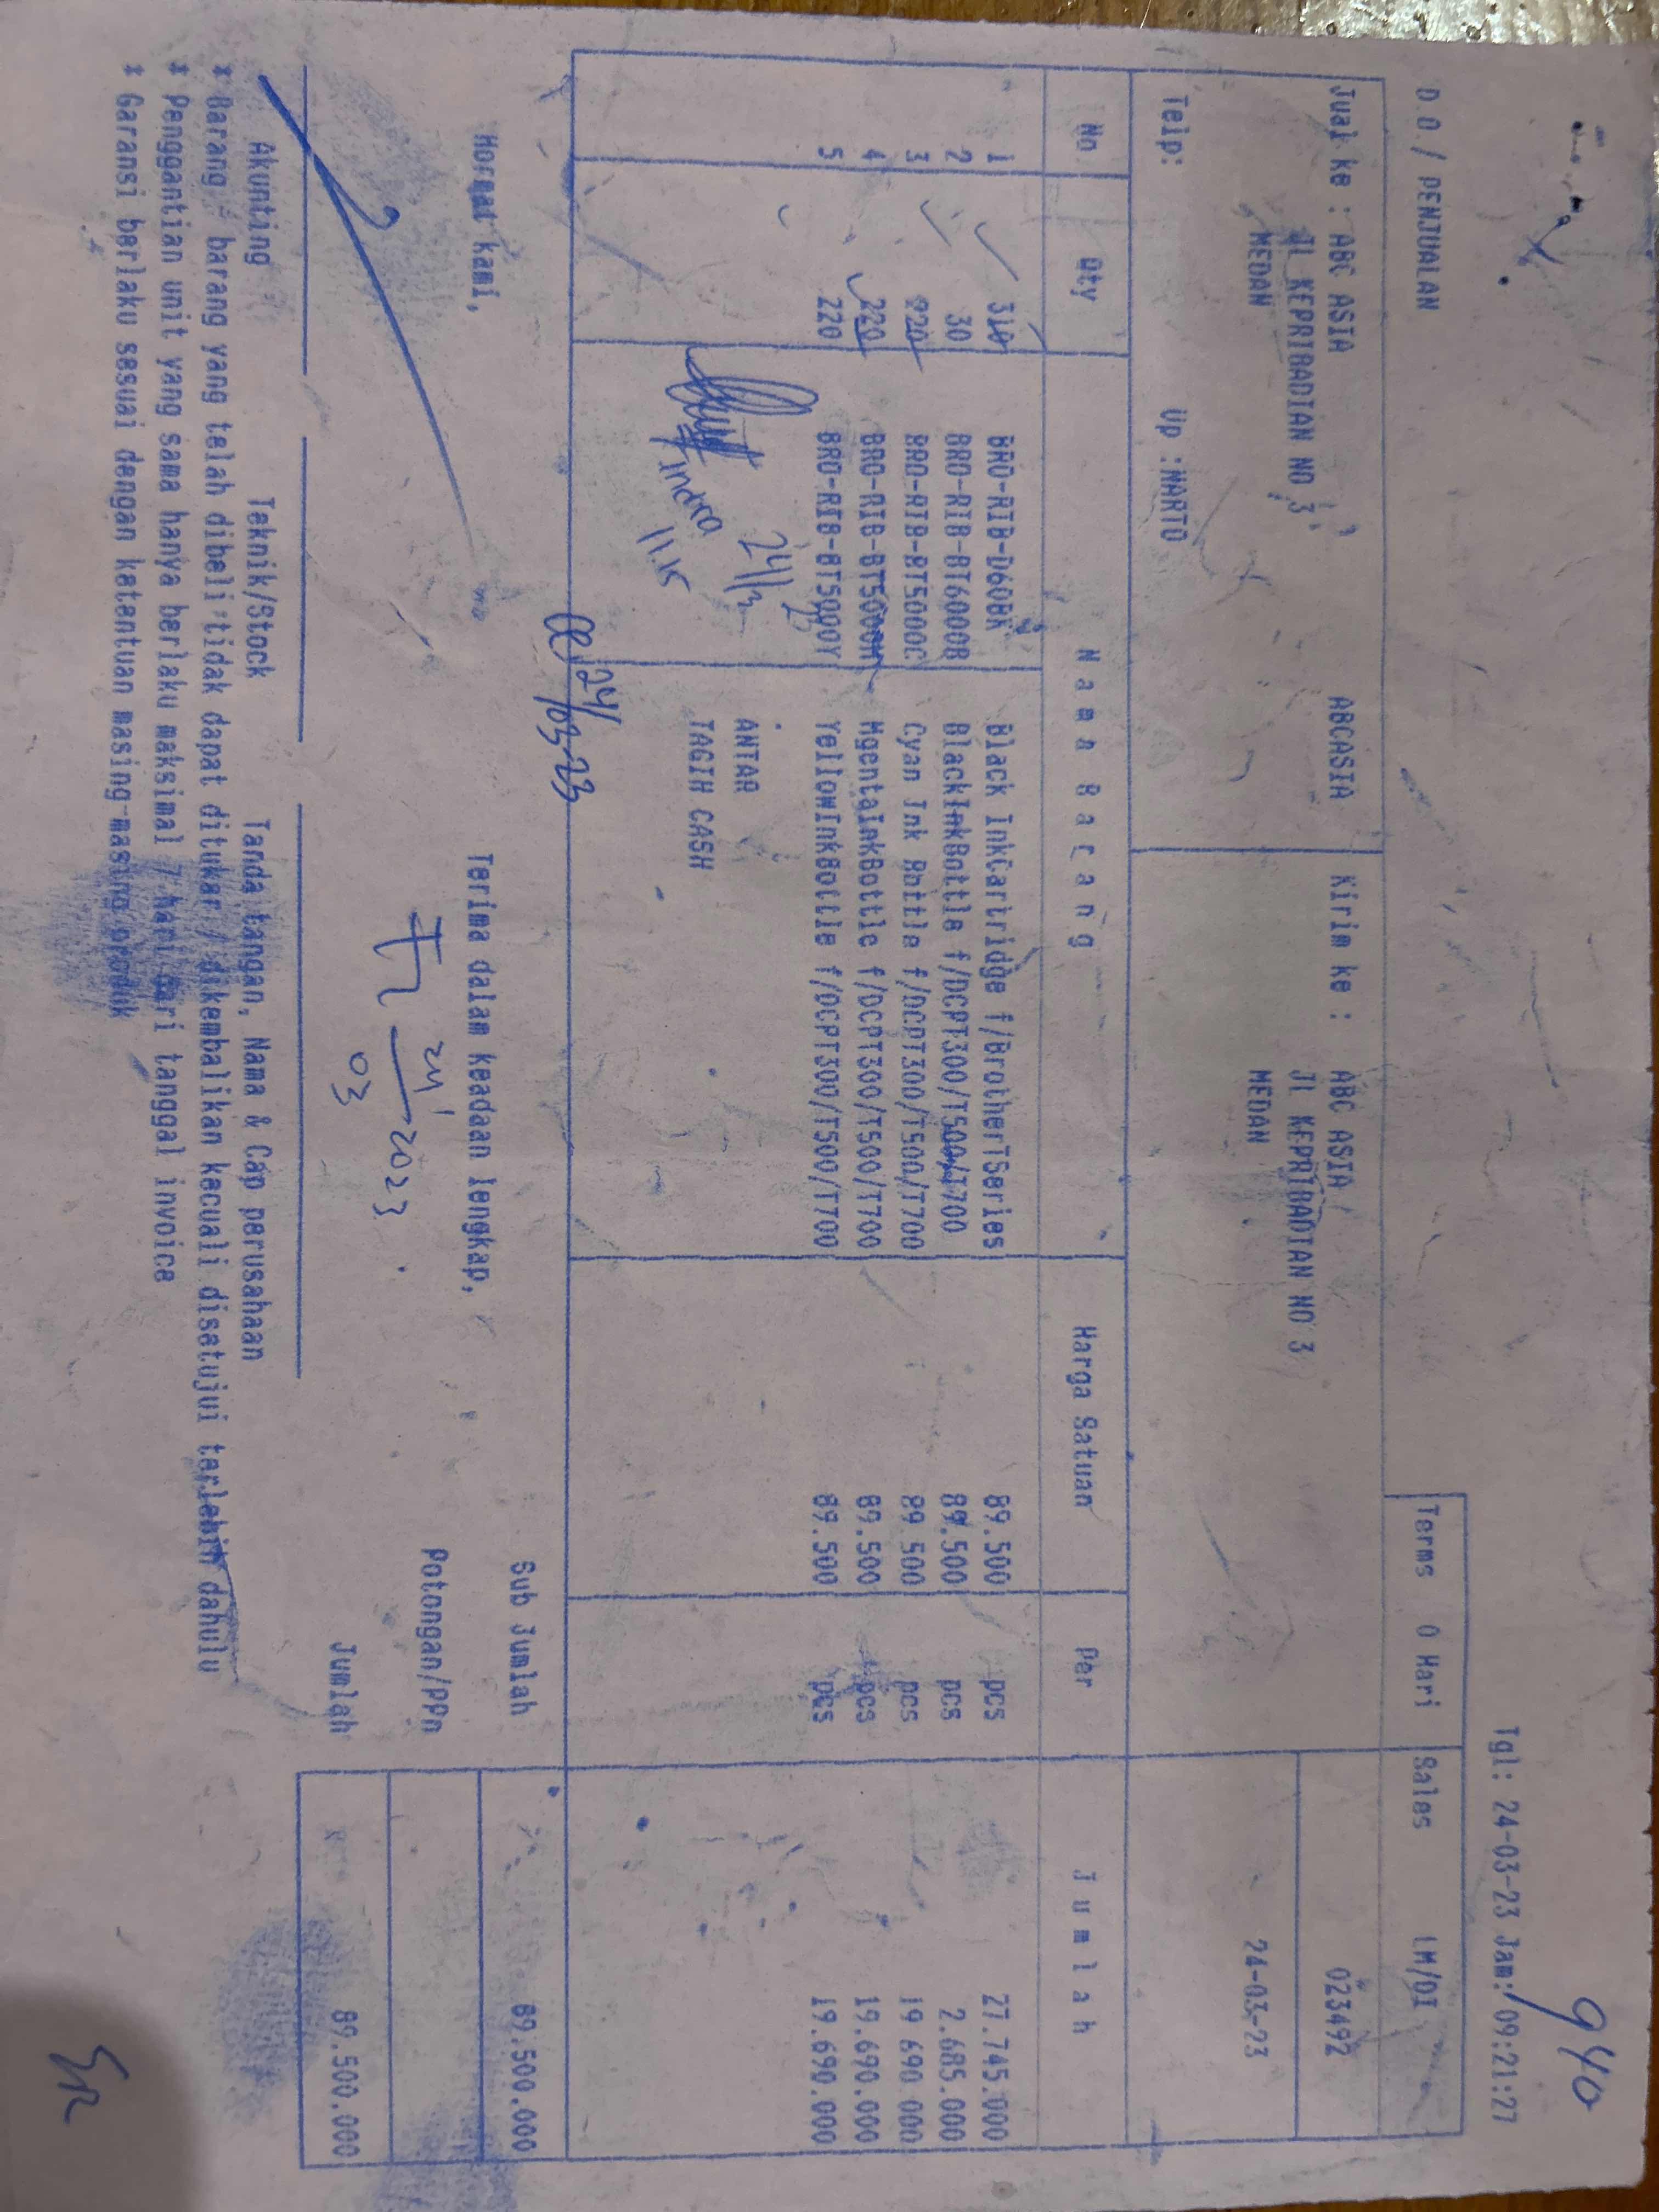 940
Tgl: 24-03-23 Jam: 09:21:27
D.O / PENJUALAN
Terms 0 Hari Sales LM/DI
Jual ke : ABC ASIA ABCASIA Kirim ke : ABC ASIA 023492
JL KEPRIBADIAN NO 3 JL KEPRIBADIAN NO 3
MEDAN MEDAN 24-03-23
Telp: Up :WARTO
No Qty Nama Barang Harga Satuan Per Jumlah
1 310 BRO-RIB-D60BK Black InkCartridge f/BrotherTSeries 89.500 pcs 27.745.000
2 30 BRO-RIB-BT6000B BlackInkBottle f/DCPT300/T500/T700 89.500 pcs 2.685.000
3 220 BRO-RIB-BT5000C Cyan Ink Bottle f/DCPT300/T500/T700 89.500 pcs 19.690.000
4 220 BRO-RIB-BT5000M MgentaInkBottle f/DCPT300/T500/T700 89.500 pcs 19.690.000
5 220 BRO-RIB-BT5000Y YellowInkBottle f/DCPT300/T500/T700 89.500 pcs 19.690.000
24/3 23
ANTAR
Indra
TAGIH CASH
11.15
24/03-23
Sub Jumlah 89.500.000
Hormat kami, Terima dalam keadaan lengkap,
Potongan/PPn
24/03 2023
Jumlah 89.500.000
Akunting Teknik/Stock Tanda tangan, Nama & Cap perusahaan
* Barang - barang yang telah dibeli tidak dapat ditukar / dikembalikan kecuali disetujui terlebih dahulu
* Penggantian unit yang sama hanya berlaku maksimal 7 hari dari tanggal invoice
* Garansi berlaku sesuai dengan ketentuan masing-masing produk